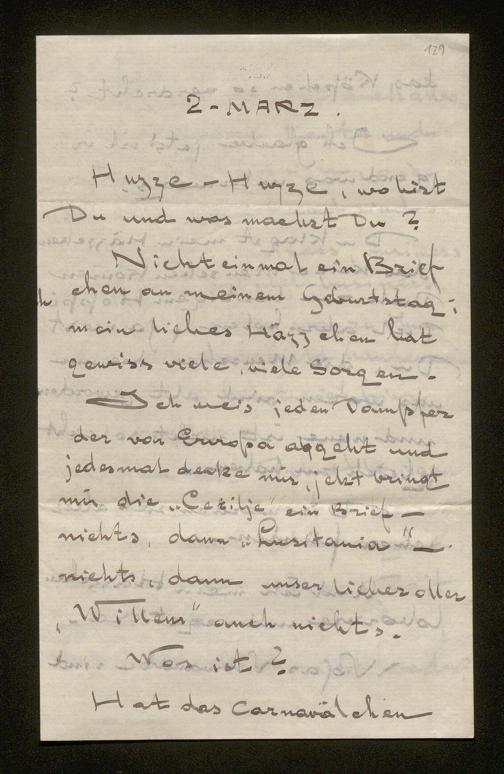 129
2-MARZ.
Huzze-Huzze, wo bist
Du und was machst Du?
Nicht einmal ein Brief
chen an meinem Geburtstag;
mein liebes Häzzchen hat
gewiss viele, viele Sorgen.
Ich weis jeden Dampfer
der von Europa abgeht und
jedesmal denke mir, jetzt bringt
mir die „Cezilje" ein Brief —
nichts, dann „Lusitania" —
nichts, dann unser lieber oller
„Willem" auch nichts.
Was ist?
Hat das Carnavälchen